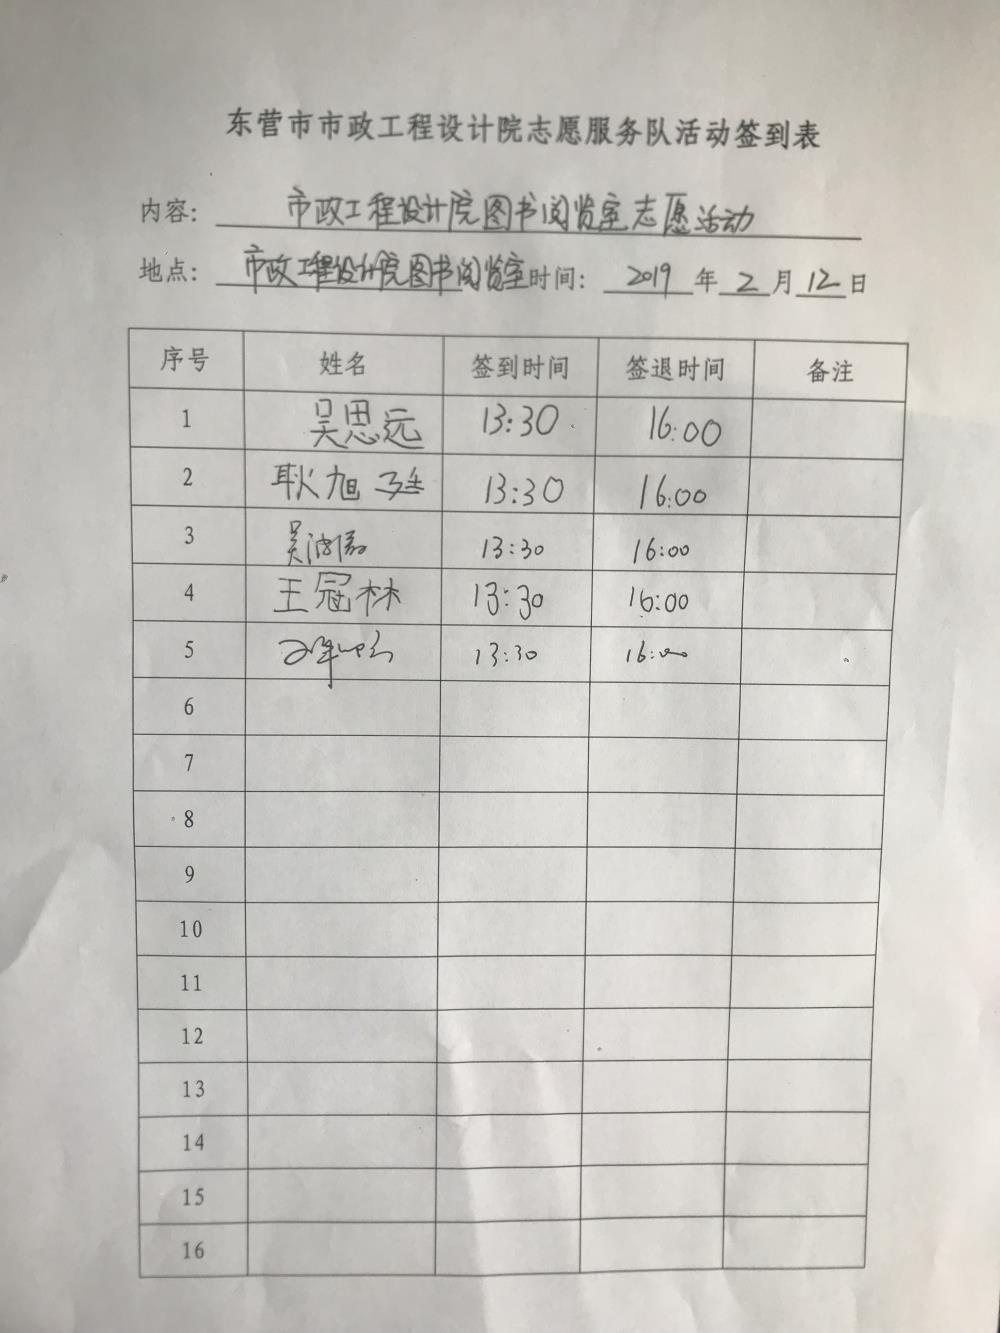 东营市市政工程设计院志愿服务队活动签到表
内容：市政工程设计院图书阅览室志愿活动
地点：市政工程设计院图书阅览室 时间：2019年2月12日
序号 姓名 签到时间 签退时间 备注
1 吴思远 13:30 16:00
2 耿旭廷 13:30 16:00
3 13:30 16:00
4 王冠林 13:30 16:00
5 13:30 16:00
6
7
8
9
10
11
12
13
14
15
16